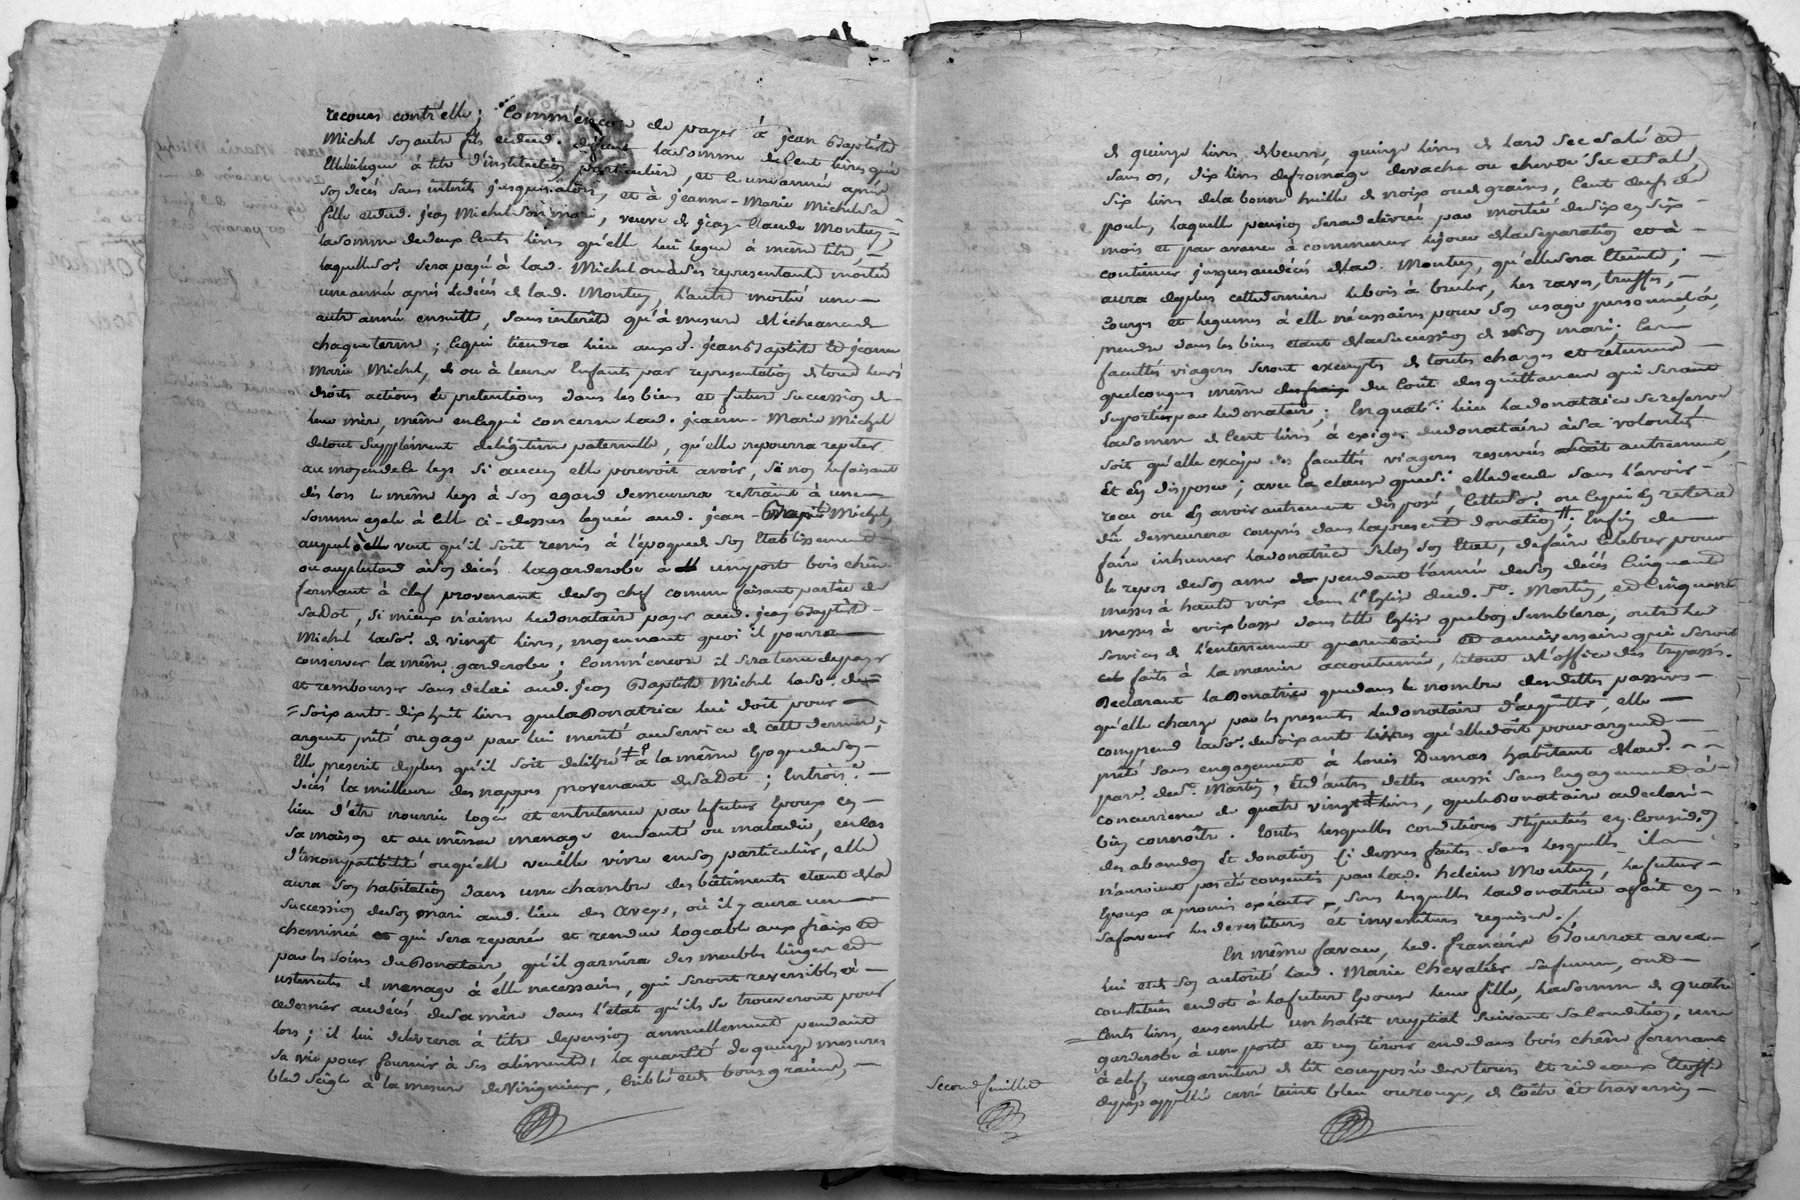 recours contr'elle; comm'encore de payer à jean Baptiste
Michel son autre fils et dud. défunt la somme de Cent livres qui
Elle lui legue à titre d'institution particuliere, et ce une année après
son décès sans interêts jusques alors, et à jeanne-Marie Michel sa
fille et dud. jean Michel son mari, veuve de jean-Claude Montuy,
la somme de deux Cents livres qu'elle lui legue à même titre,
laquelle so. sera payée à lad. Michel ou à ses representants moitié
une année après le décès de lad. Montuy, l'autre moitié une
autre année ensuitte, sans interêts qu'à mesure d'échéance de
chaque terme; ce qui tiendra lieu aux d. jean Baptiste et jeanne
Marie Michel, ou à leurs Enfants par representation de tous leurs
droits actions et pretentions dans les biens et future succession de
leur mère, même en ce qui concerne lad. jeanne-Marie Michel
de tout supplément de légitime paternelle, qu'elle ne pourra repeter
au moyen de ce legs si aucun elle pouvoit avoir, si non le faisant
dès lors le même legs à son egard demeurera restraint à une
somme egale à celle ci-dessus leguée aud. jean-Baptiste Michel,
auquel elle veut qu'il soit remis à l'époque de son Etablissement
ou au plus tard à son décès la garderobe à une porte bois chêne
fermant à clef provenant de son chef comme faisant partie de
sa Dot, si mieux n'aime le donataire payer aud. jean Baptiste
Michel la so. de vingt livres, moyennant quoi il pourra
conserver la même garderobe; comm'encore il sera tenu de payer
et rembourser sans delai aud. jean Baptiste Michel la so. de
soixante-dix huit livres que la Donatrice lui doit pour
argent prêté ou gage par lui merité au service de cette derniere;
Elle prescrit de plus qu'il soit delivré à la même Epoque de son
décès la meilleure des nappes provenant de sa Dot; En trois.
lieu d'être nourrie logée et entretenue par le futur Epoux en
sa maison et au même menage en santé ou maladie, en cas
d'incompatibilité ou qu'elle veuille vivre en son particulier, elle
aura son habitation dans une chambre des bâtiments etant de la
succession de son mari aud. lieu des Aveys, où il y aura une
cheminée qui sera reparée et rendue logeable aux fraix et
par les soins du Donataire, qu'il garnira des meubles linges et
ustenciles de menage à elle necessaires, qui seront reversibles à
ce dernier au décès de sa mère dans l'état qu'ils se trouveront pour
lors; il lui delivrera à titre de pension annuellement pendant
sa vie pour fournir à ses aliments, la quantité de quinze mesures
bled seigle à la mesure de Virignieux, criblé et de bons grains,
de quinze livres de beurre, quinze livres de lard sec salé et
sans os, dix livres de fromage de vache ou chevre sec et salé,
six livres de la bonne huille de noix ou de grains, Cent œufs de
poule, laquelle pension sera delivrée par moitié de six en six
mois et par avance à commencer le jour de la separation et à
continuer jusques au décès de lad. Montuy, qu'elle sera éteinte;
aura de plus cette derniere le bois à bruler, les raves, truffes,
courges et legumes à elle nécessaires pour son usage personnel, à
prendre dans les biens etant de la succession de son mari; Ces
facultés viageres seront exemptes de toutes charges et retenues
quelconques même du coût des quittances qui seront
suportées par le donataire; En quatr. lieu la donatrice se reserve
la somme de Cent livres à exiger du donataire à sa volonté
soit qu'elle exige des facultés viageres reservées soit autrement,
Et en disposer; avec la clause que si elle decede sans l'avoir
reçu ou en avoir autrement disposé, cette so. ou ce qui en restera
dû demeurera compris dans la presente donation; Enfin de
faire inhumer la donatrice selon son Etat, de faire celebrer pour
le repos de son ame pendant l'année de son décès Cinquante
messes à haute voix dans l'Eglise dud. St. Martin, et Cinquante
messes à voix basse dans telle Eglise que bon semblera, outre les
services de l'enterrement quarantaine et anniversaire qui seront
faits à la maniere accoutumée, le tout de l'office des trepassés.
Declarant la Donatrice que dans le nombre des dettes passives
qu'elle charge par les presentes le donataire d'acquitter, elle
comprend la so. de soixante livres qu'elle doit pour argent
prêté sans engagement à Louis Dumas habitant de lad.
par. de St. Martin, Et d'autres dettes aussi sans engagement à
concurrence de quatre vingt livres, que le Donataire a declaré
bien connoître. Toutes lesquelles conditions stipulées en considon.
des abandon Et donation Ci dessus faits sans lesquelles ils
n'auroient pas été consentis par lad. heleine Montuy, le futur
Epoux a promis executer, sous lesquelles la donatrice a fait en
sa faveur les devestitures et investitures requises./
En même faveur, led. françois Bourrat avec
lui et de son autorité lad. Marie Chevalier sa femme, ont
constitués en dot à la future Epouse leur fille, la somme de quatre
Cents livres, ensemble un habit nuptial suivant sa Condition, une
garderobe à une porte et un tiroir en dedans bois chêne fermant
à clef, une garniture de lit composée des tours Et rideaux Etoffe
de païs appellée carré teint bleu ou rouge, de Coëtre Et traversin
Second feuillet